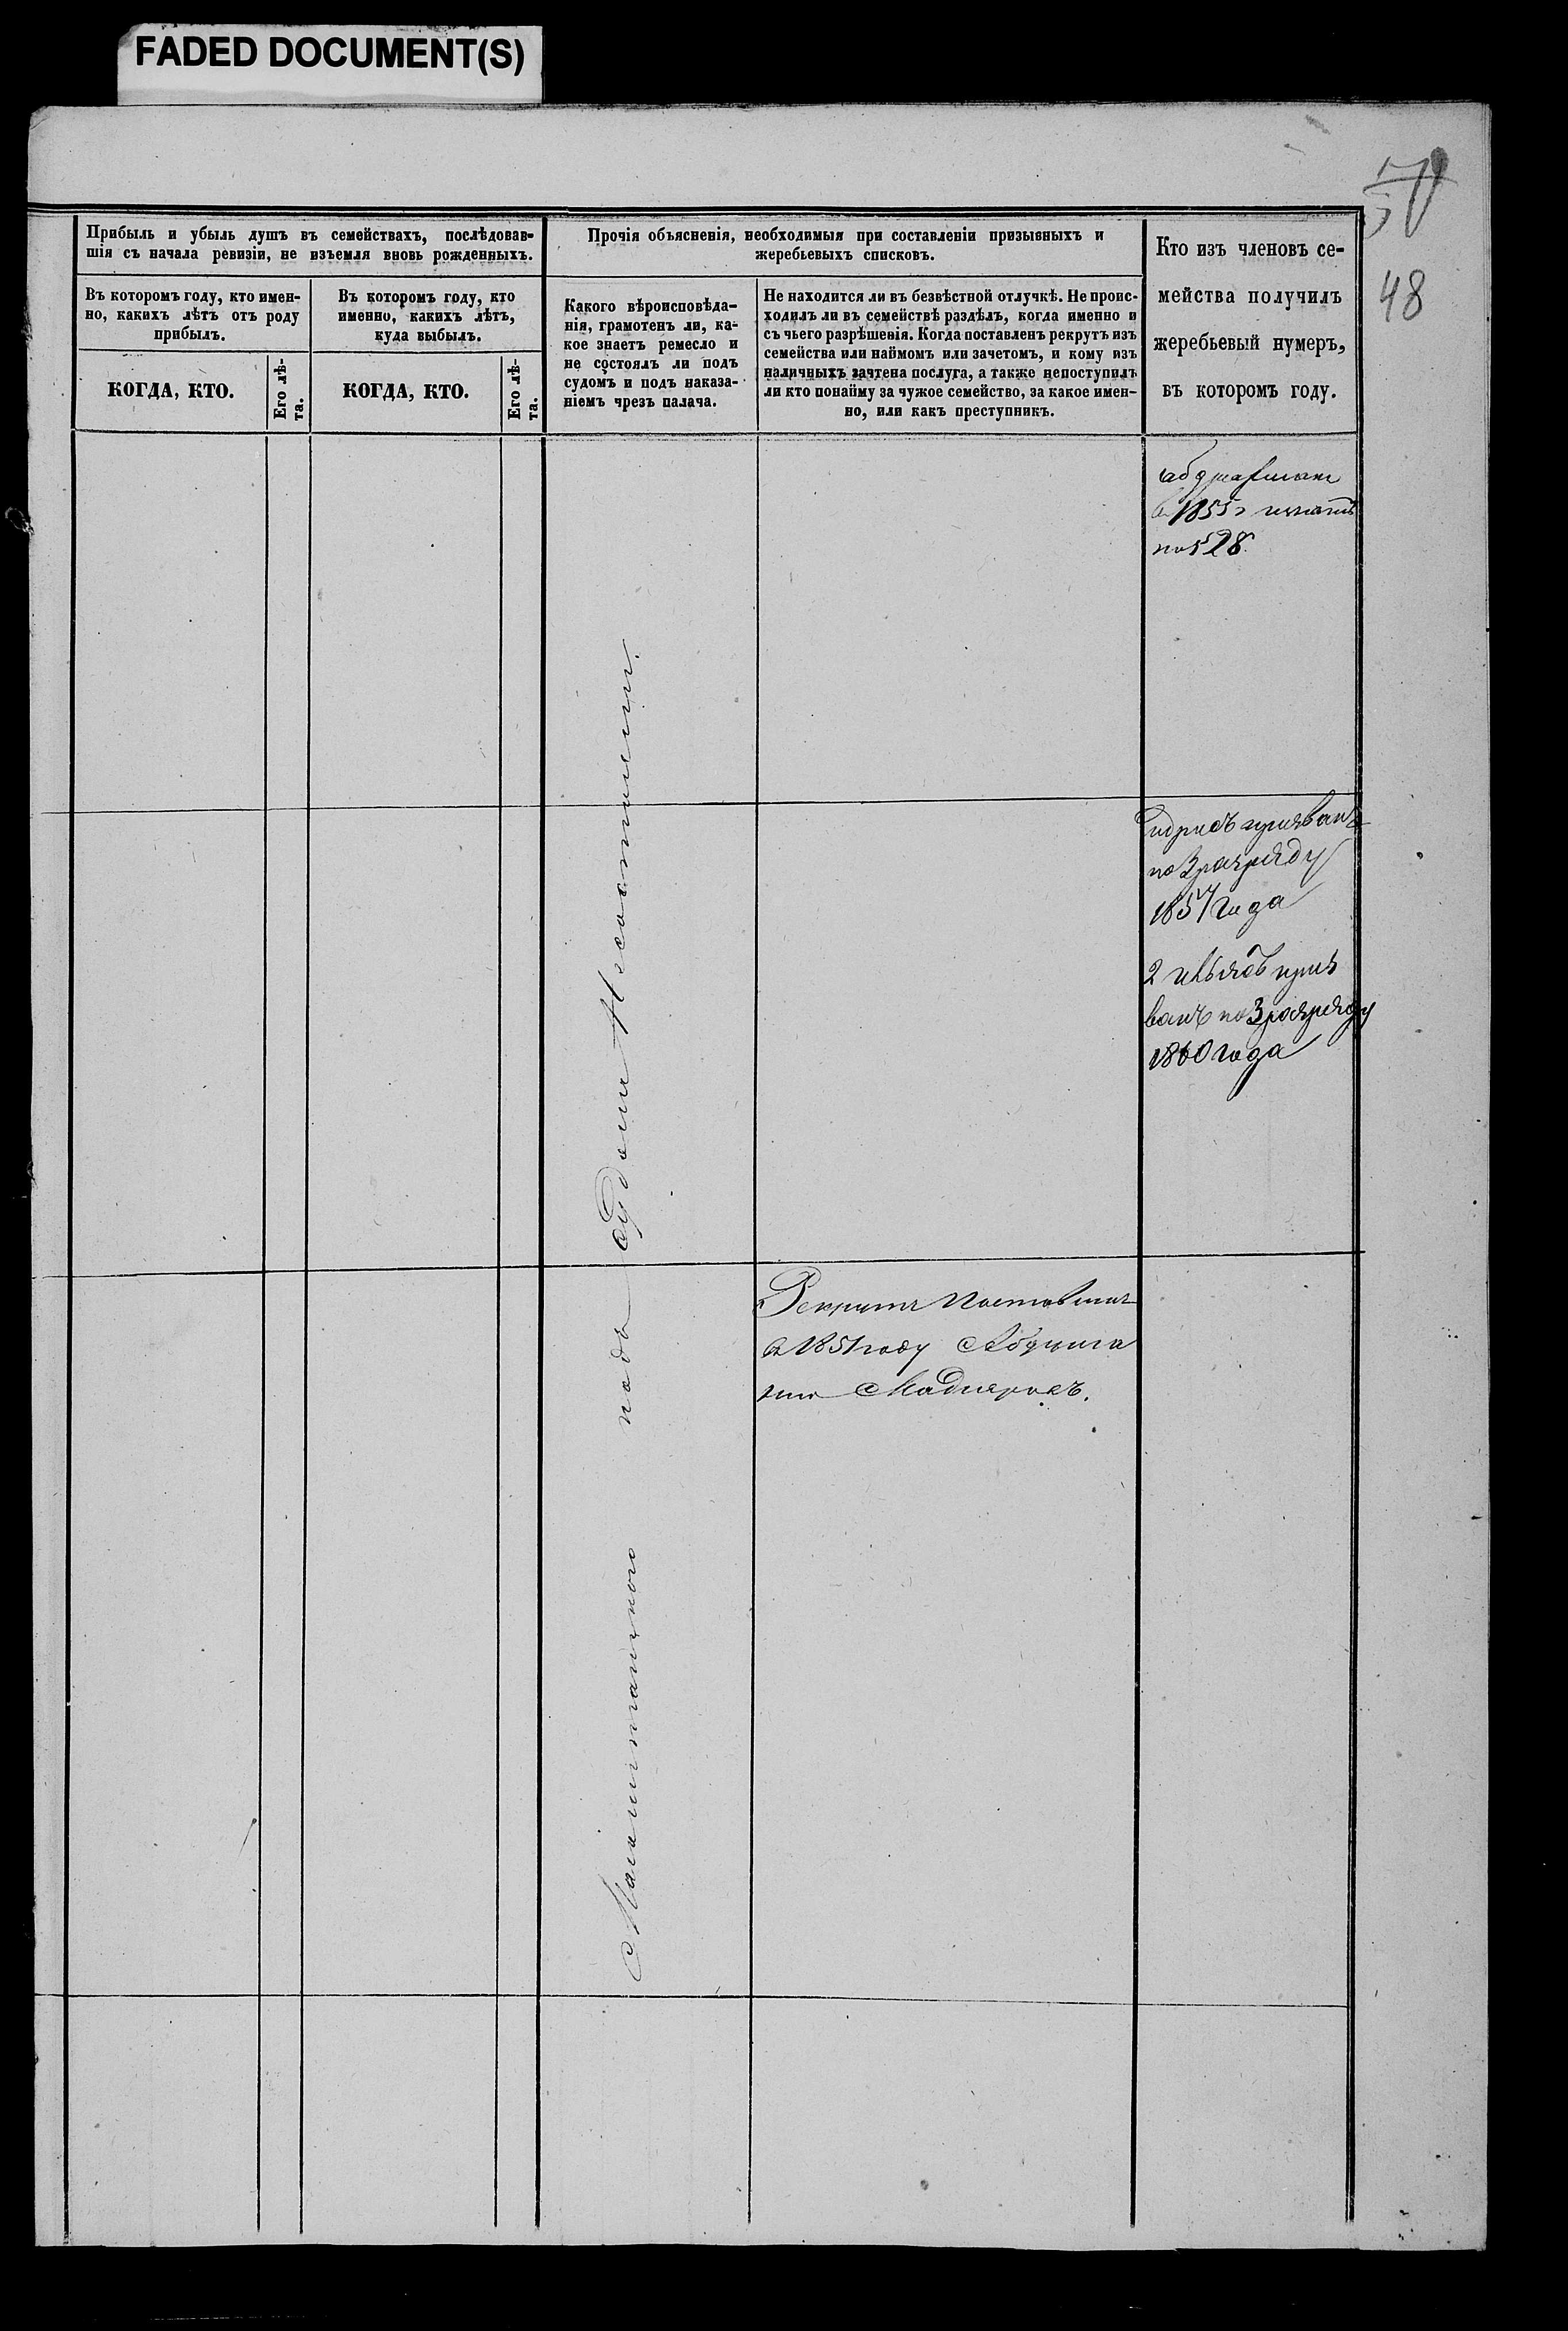 FADED DOCUMENT(S)
48
Прибыль и убыль душъ въ семействахъ, послѣдовав-
шія съ начала ревизіи, не изъемля вновь рожденныхъ.
Прочія объясненія, необходимыя при составленіи призывныхъ и
жеребьевыхъ списковъ.
Кто изъ членовъ се-
мейства получилъ
жеребьевый нумеръ,
въ которомъ году.
Въ которомъ году, кто имен-
но, какихъ лѣтъ отъ роду
прибылъ.
Въ которомъ году, кто
именно, какихъ лѣтъ,
куда выбылъ.
Какого вѣроисповѣда-
нія, грамотенъ ли, ка-
кое знаетъ ремесло и
не состоялъ ли подъ
судомъ и подъ наказа-
ніемъ чрезъ палача.
Не находится ли въ безвѣстной отлучкѣ. Не проис-
ходилъ ли въ семействѣ раздѣлъ, когда именно и
съ чьего разрѣшенія. Когда поставленъ рекрутъ изъ
семейства или наймомъ или зачетомъ, и кому изъ
наличныхъ зачтена послуга, а также непоступилъ
ли кто понайму за чужое семейство, за какое имен-
но, или какъ преступникъ.
КОГДА, КТО.
Его лѣ-
та.
КОГДА, КТО.
Его лѣ-
та.
в 1855 г
528
идрисъ призванъ
по 3 разряду
1857 года
2 призъ
ванъ по 3 разряду
1860 года
Магометанскаго подъ судомъ Несостояли.
Рекрутъ Поставленъ
в 1851 году